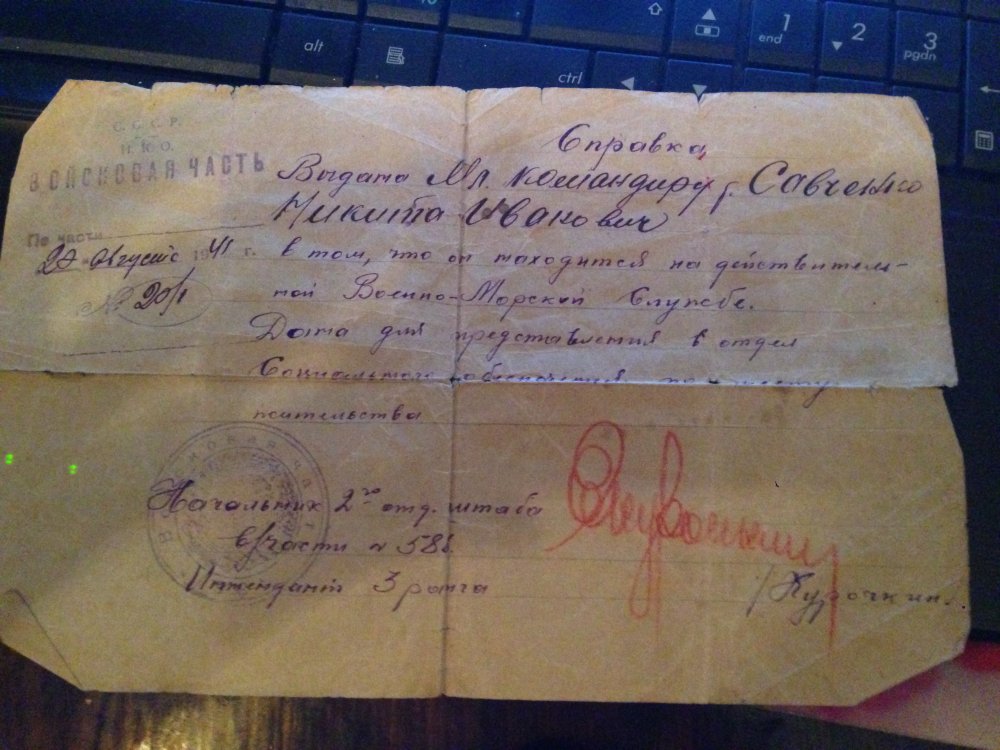 С.С.С.Р.
Н.К.О.
ВОЙСКОВАЯ ЧАСТЬ
По части
августа 1941 г.
№ 20/1
Справка
Выдана Мл. командиру т. Савченко
Никита Иванович
в том, что он находится на действитель-
ной Военно-Морской Службе.
Дана для представления в отдел
Социального обеспечения по месту
жительства
Начальник 2го отд. штаба
в/части № 58
Интендант 3 ранга
/Курочкин
alt
ctrl
1
end
2
3
pgdn